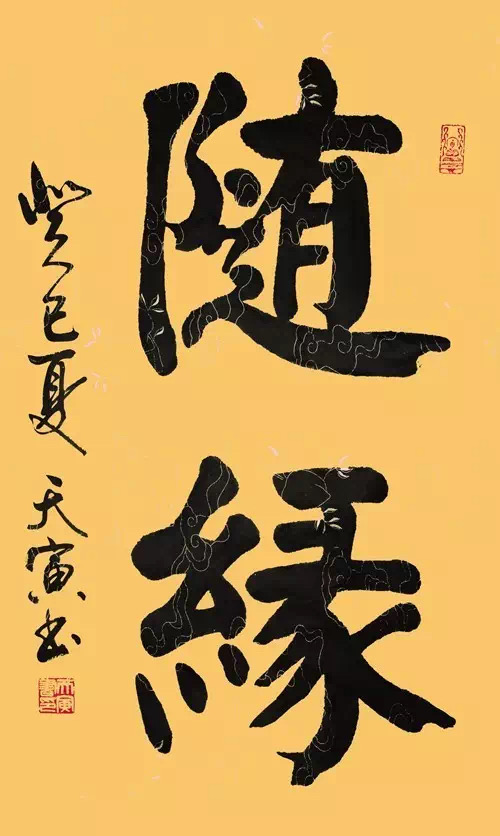 随
緣
癸巳夏天寅书